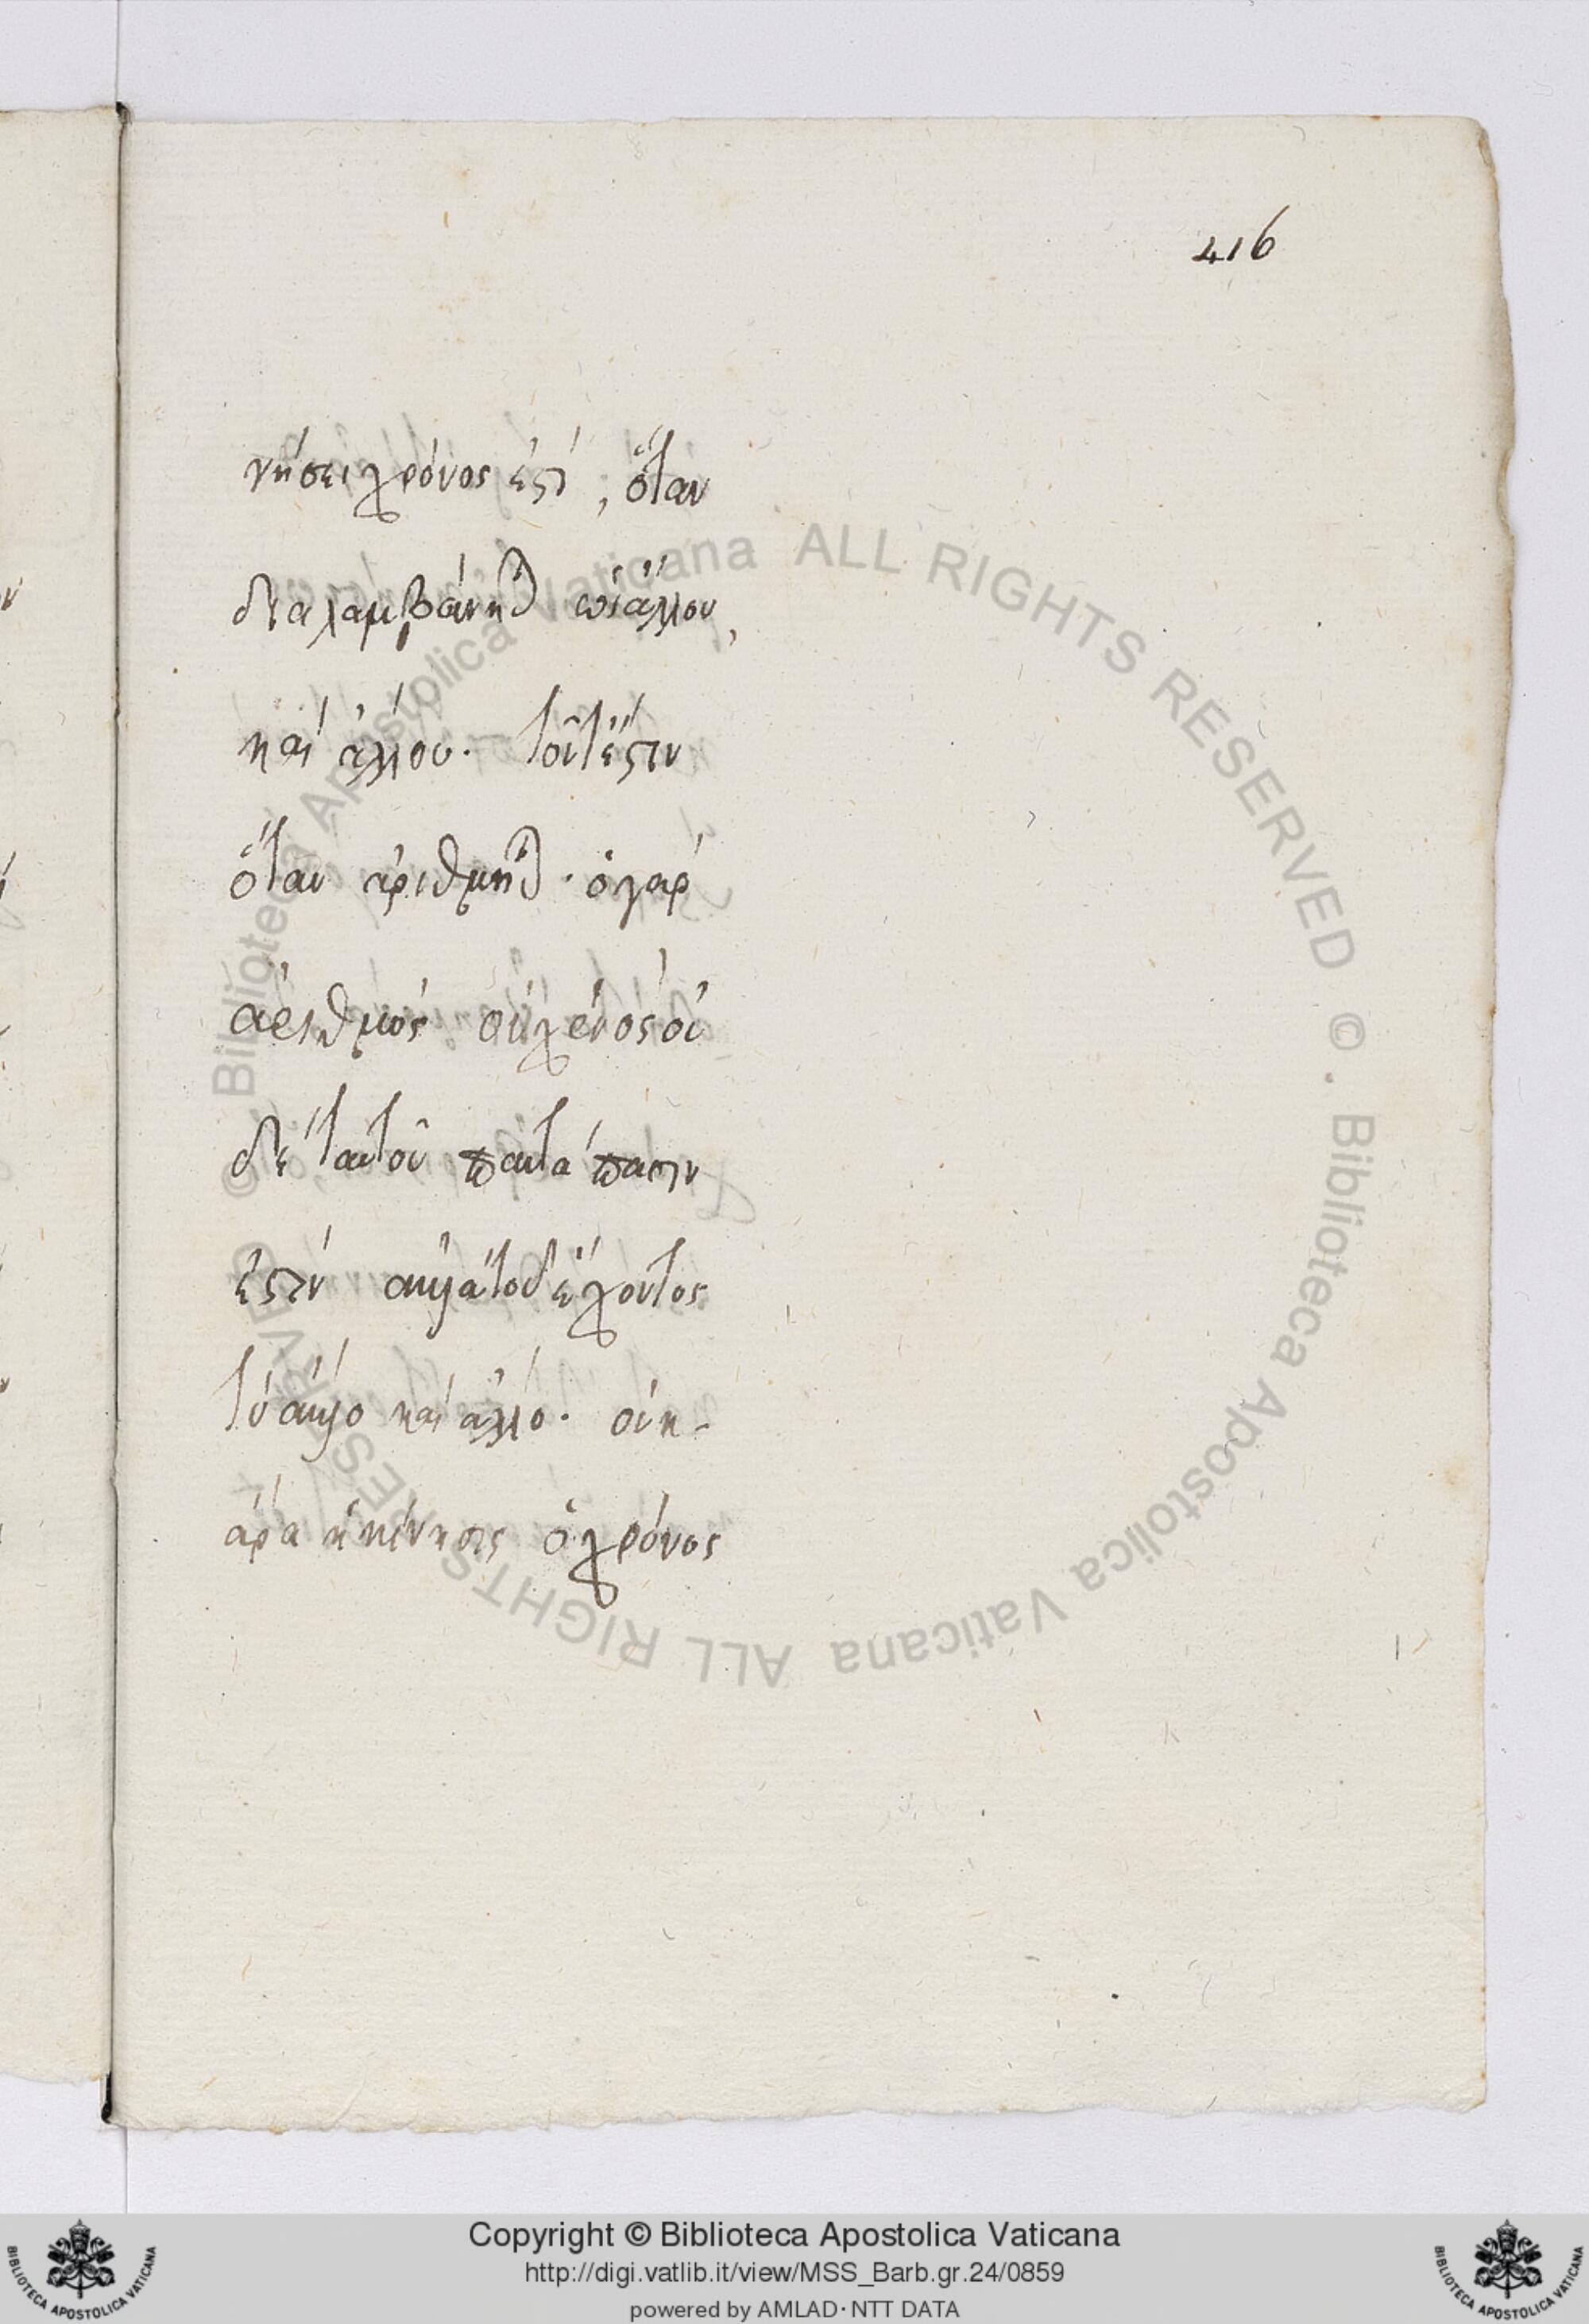 416
νήσει χρόνος ἐστὶ, ὅταν
διαλαμβάνηται ὡς ἄλλου,
καὶ ἄλλου. τοῦτέστιν
ὅταν ἀριθμῆται. ὁ γὰρ
ἀριθμὸς οὐχ ἑνὸς οὐ
δὲ ταυτοῦ παντάπασίν
ἐστιν ἀλλὰ τοῦδ' ἔχοντος
τὸ ἄλλο καὶ ἄλλο. οὐκ-
ἄρα ἡ κίνησις ὁ χρόνος
© Biblioteca Apostolica Vaticana ALL RIGHTS RESERVED © Biblioteca Apostolica Vaticana ALL RIGHTS RESERVED
Copyright © Biblioteca Apostolica Vaticana
http://digi.vatlib.it/view/MSS_Barb.gr.24/0859
powered by AMLAD·NTT DATA
BIBLIOTECA APOSTOLICA VATICANA
BIBLIOTECA APOSTOLICA VATICANA